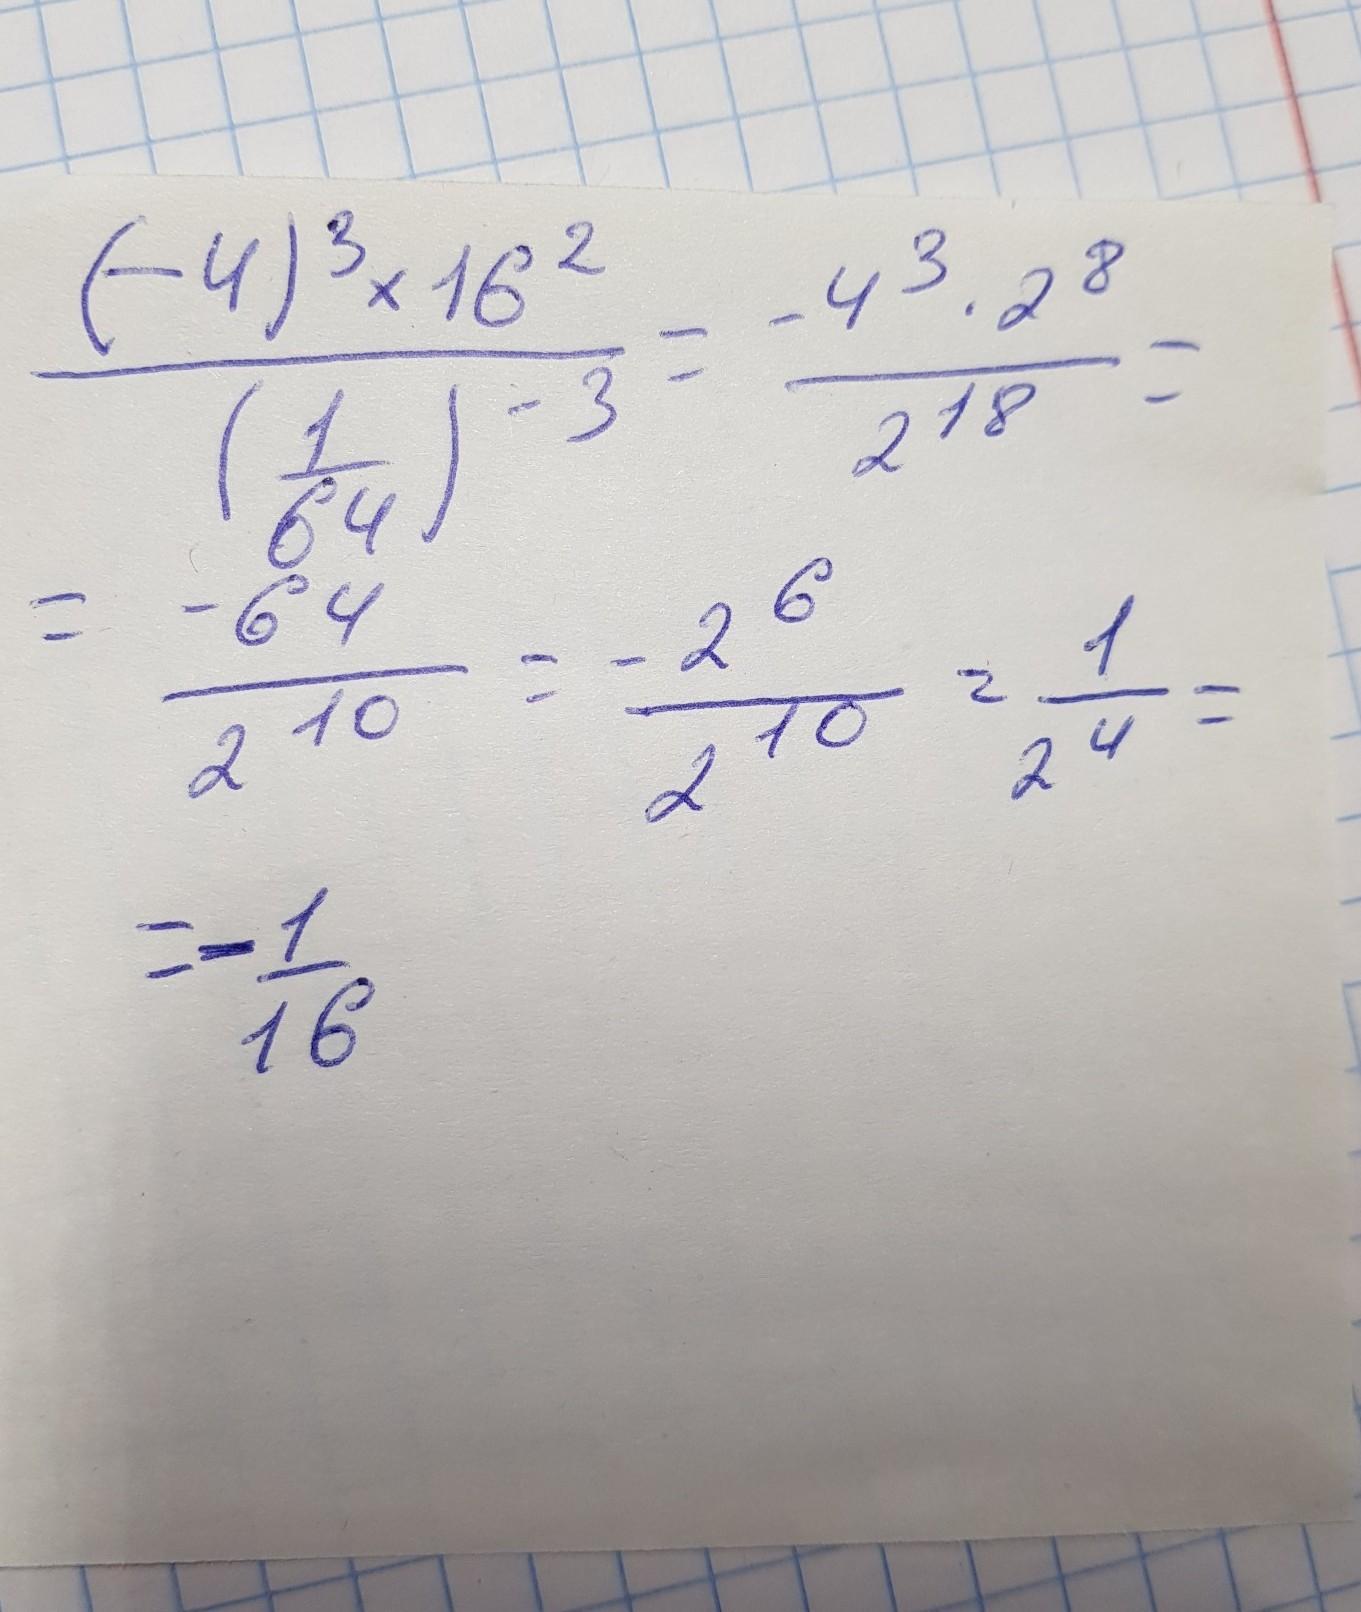 (-4)³ × 16² / (1/64)⁻³ = -4³ · 2⁸ / 2¹⁸ =
= -64 / 2¹⁰ = -2⁶ / 2¹⁰ = 1 / 2⁴ =
= - 1/16